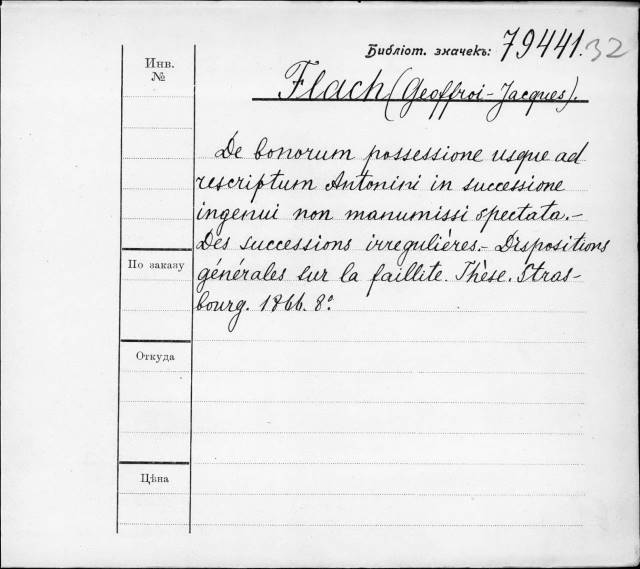 Библіот. значекъ: 79441. 32
Инв.
№
Flach (Geoffroi-Jacques).
De bonorum possessione usque ad
rescriptum Antonini in successione
ingenui non manumissi spectata.-
Des successions irregulières.- Dispositions
По заказу
générales sur la faillite. Thèse. Stras-
bourg. 1866. 8°.
Откуда
Цѣна